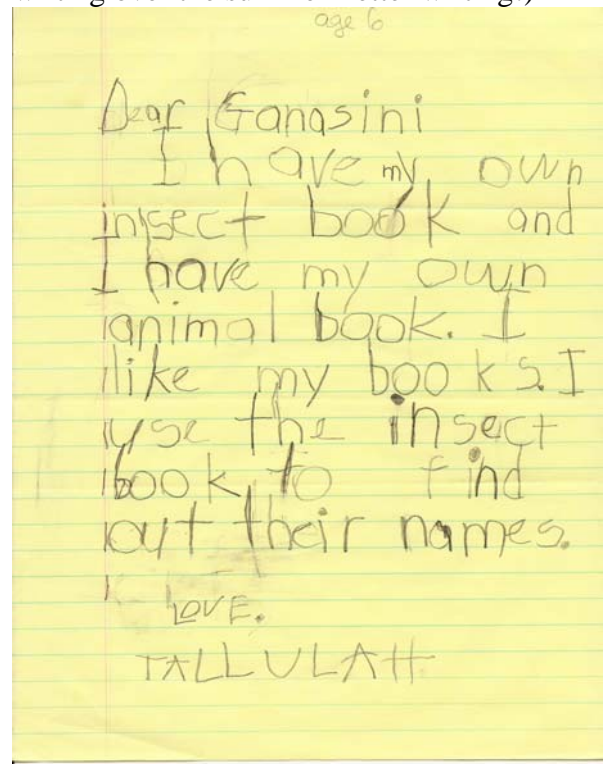 age 6
Dear Ganasini
I have my own
insect book and
I have my own
animal book. I
like my books. I
use the insect
book to find
out their names.
Love.
TALLULAH